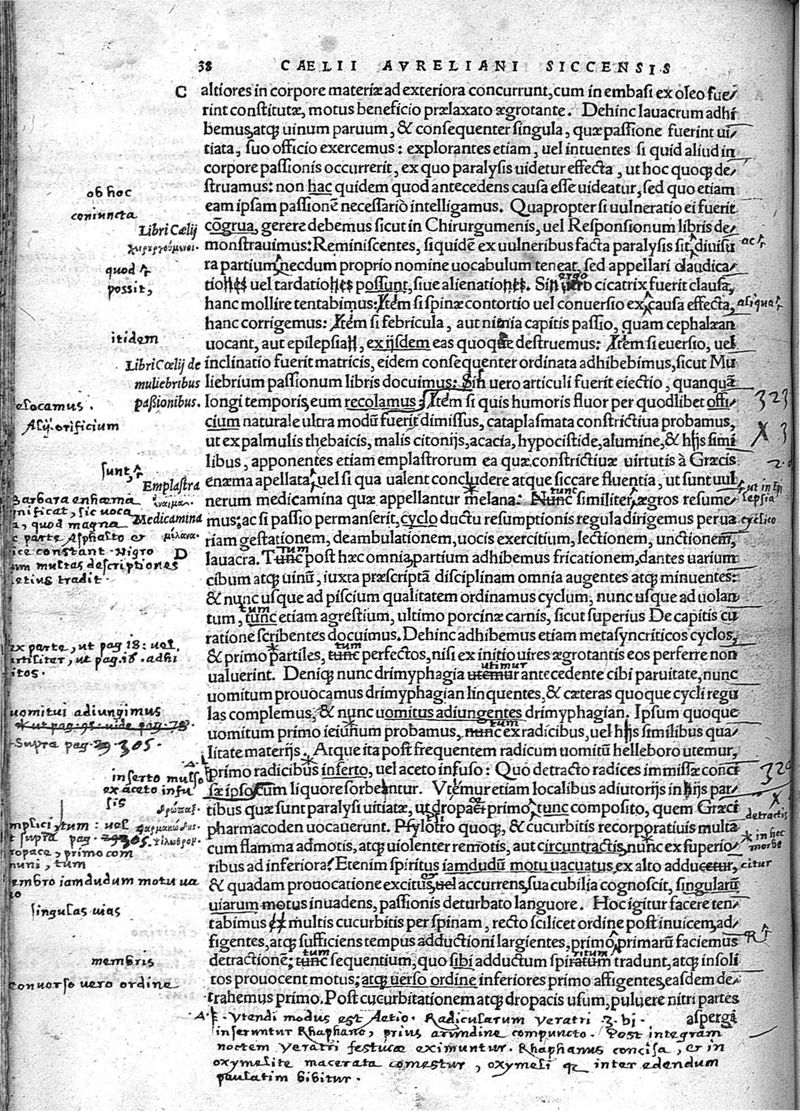 38 CAELII AVRELIANI SICCENSIS
C altiores in corpore materiæ ad exteriora concurrunt, cum in embasi ex oleo fue-
rint constitutæ, motus beneficio prælaxato ægrotante. Dehinc lauacrum adhi
bemus, atq; uinum paruum, & consequenter singula, quæ passione fuerint ui-
tiata, suo officio exercemus: explorantes etiam, uel intuentes si quid aliud in
corpore passionis occurrerit, ex quo paralysis uidetur effecta, ut hoc quoq; de-
struamus: non hac quidem quod antecedens causa esse uideatur, sed quo etiam
ob hoc
eam ipsam passionē necessariò intelligamus. Quapropter si uulneratio ei fuerit
coniuncta
cōgrua, gerere debemus sicut in Chirurgumenis, uel Responsionum libris de-
Libri Cælij
χειρεργούμενοι.
monstrauimus: Reminiscentes, siquidē ex uulneribus facta paralysis sit, diuisu
ac
ra partium, necdum proprio nomine uocabulum teneat, sed appellari claudica-
quod
possit,
tiones uel tardationes possunt, siue alienationes. Sin uero cicatrix fuerit clausa,
ergo
hanc mollire tentabimus: Item si spinæ contortio uel conuersio ex causa effecta,
aliqua
hanc corrigemus: Item si febricula, aut nimia capitis passio, quam cephalæan
itidem
uocant, aut epilepsia, ex ijsdem eas quoque destruemus: Item si euersio, uel
Libri Cælij de
muliebribus
passionibus.
inclinatio fuerit matricis, eidem consequenter ordinata adhibebimus, sicut Mu
liebrium passionum libris docuimus: Sin uero articuli fuerit eiectio, quanquā
elocamus.
longi temporis, eum recolamus: Item si quis humoris fluor per quodlibet offi-
323
Alij orificium
cium naturale ultra modū fuerit dimissus, cataplasmata constrictiua probamus,
X 3
ut ex palmulis thebaicis, malis citonijs, acacia, hypocistide, alumine, & hijs simi
libus, apponentes etiam emplastrorum ea quæ constrictiuæ uirtutis à Græcis
sunt,
Emplastra
ἔναιμα.
enæma appellata, uel si qua ualent concludere atque siccare fluentia, ut sunt uul
Medicamina
μέλανα.
nerum medicamina quæ appellantur melana: Nunc similiter, ægros resume-
tunc
mus: ac si passio permanserit, cyclo ductu resumptionis regula dirigemus per ua
cyclico
riam gestationem, deambulationem, uocis exercitium, lectionem, unctionem,
D
lauacra. Tunc post hæc omnia, partium adhibemus fricationem, dantes uarium
tum
cibum atq; uinū, iuxta præscriptā disciplinam omnia augentes atq; minuentes:
& nunc usque ad piscium qualitatem ordinamus cyclum, nunc usque ad uolan
tum, tunc etiam agrestium, ultimo porcinæ carnis, sicut superius De capitis cu
tum
ratione scribentes docuimus. Dehinc adhibemus etiam metasyncriticos cyclos,
& primo partiles, tunc perfectos, nisi ex initio uires ægrotantis eos perferre non
tum
ualuerint. Deniq; nunc drimyphagia utemur antecedente cibi paruitate, nunc
utimur
uomitum prouocamus drimyphagian linquentes, & cæteras quoque cycli regu
uomitui adiungimus
las complemus, & nunc uomitus adiungentes drimyphagian. Ipsum quoque
Supra pag. 29 305.
uomitum primo ieiunum probamus, nunc ex radicibus, uel hijs similibus qua-
tum
litate materijs. Atque ita post frequentem radicum uomitū helleboro utemur,
primo radicibus inserto, uel aceto infuso: Quo detracto radices immissæ conci
inserto mulso
ex aceto infu
sis
sæ ipso cum liquore sorbentur. Vtemur etiam localibus adiutorijs in hijs par-
tibus quæ sunt paralysi uitiatæ, ut dropace primo, tunc composito, quem Græci
δρῶπαξ.
pharmacoden uocauerunt. Psylotro quoq; & cucurbitis recorporatiuis multa
φαρμακώδης.
cum flamma admotis, atq; uiolenter remotis, aut circuntractis, nunc ex superio-
detractis
in hoc
morbo
ribus ad inferiora: Etenim spiritus iamdudū motu uacuatus, ex alto adducetur,
citur
& quadam prouocatione excitus, uel accurrens, sua cubilia cognoscit, singularū
uiarum motus inuadens, passionis deturbato languore. Hoc igitur facere ten-
singulas uias
tabimus et multis cucurbitis per spinam, recto scilicet ordine post inuicem, ad-
figentes, atq; sufficiens tempus adductioni largientes, primo, primarū faciemus
membris
detractionē: tunc sequentium, quo sibi adductum spiratum tradunt, atq; insoli
tum
ritum
conuerso uero ordine
tos prouocent motus: atq; uerso ordine inferiores primo affigentes, easdem de-
trahemus primo. Post cucurbitationem atq; dropacis usum, puluere nitri partes
aspergi
Vtendi modus est Aetio. Radicularum veratri
inseruntur Rhaphano, prius arundine compuncto. Post integram
noctem veratri festucæ eximuntur. Rhaphanus concisa, et in
oxymelite macerata comestur, oxymeli q; inter edendum
paulatim bibitur.